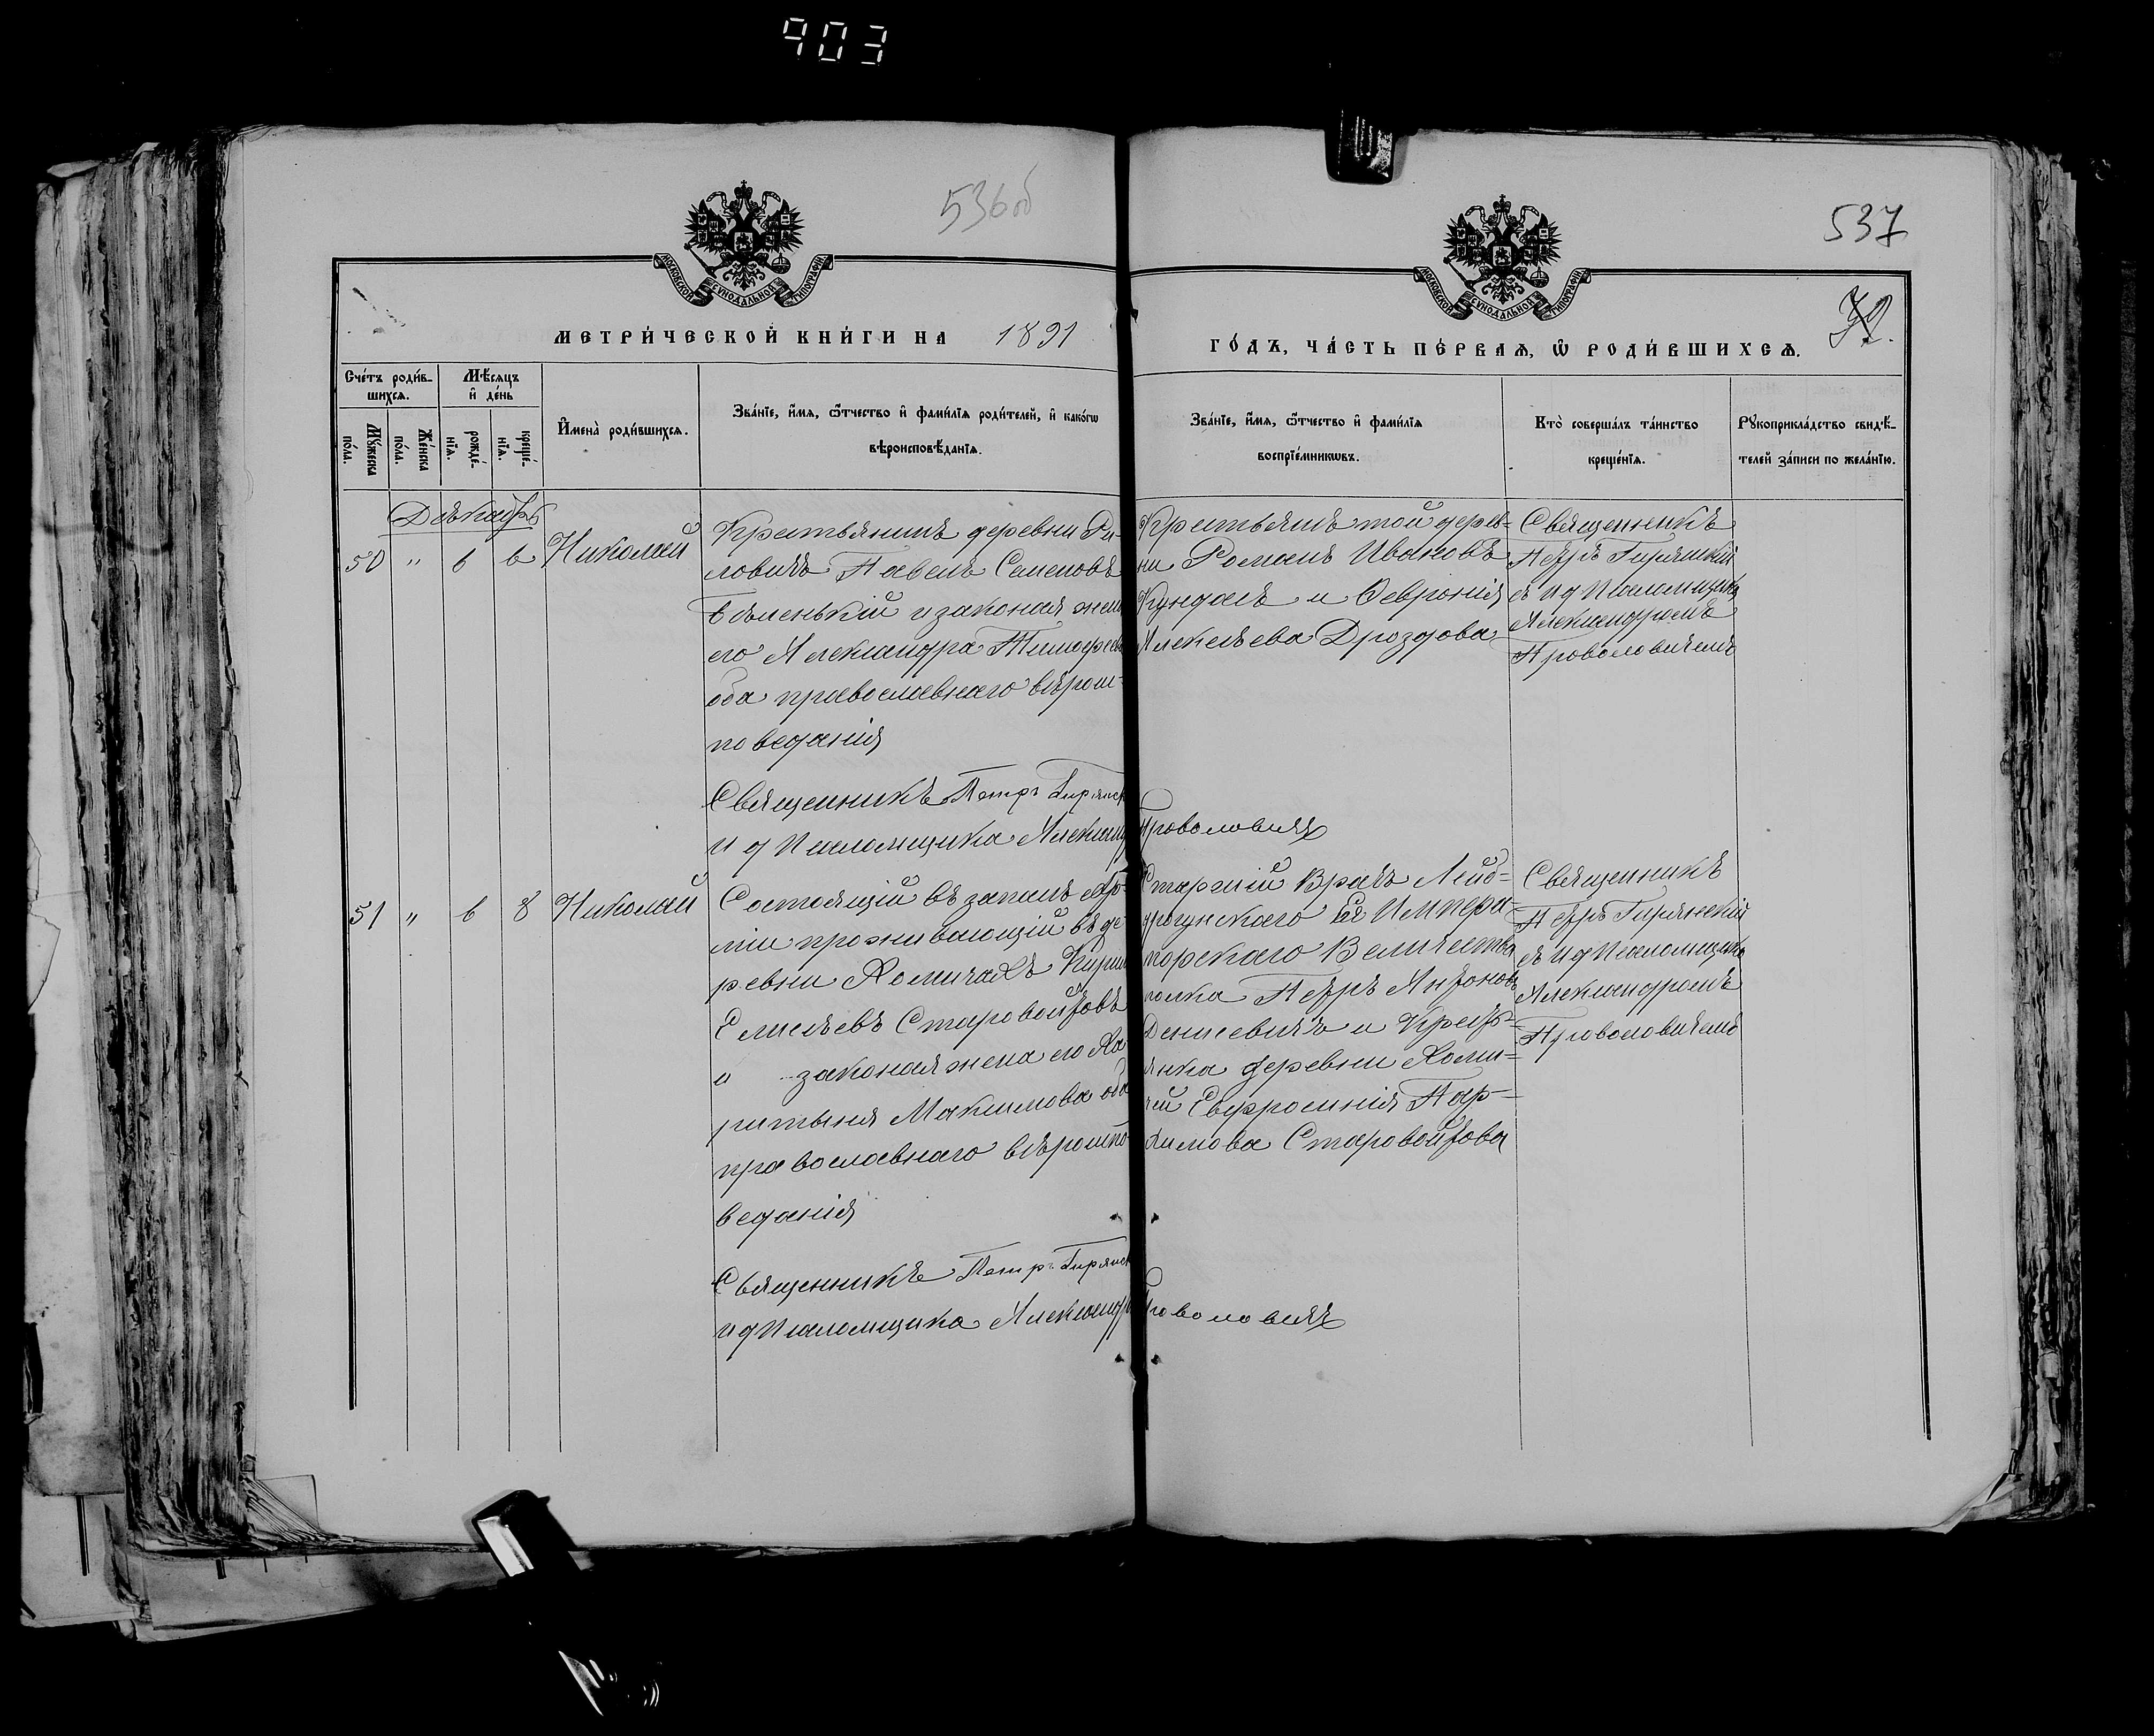 903
536 об
537
МОСКОВСКОЙ СѴНОДАЛЬНОЙ ТИПОГРАФІИ
МОСКОВСКОЙ СѴНОДАЛЬНОЙ ТИПОГРАФІИ
72.
МЕТРИ́ЧЕСКОЙ КНИ́ГИ НА 1891
ГО́ДЪ, ЧА́СТЬ ПЕ́РВАѦ, Ѡ҆ РОДИ́ВШИХСѦ.
Сче́тъ роди́в-
шихсѧ.
Мѣ́сѧцъ
и҆ де́нь
Мꙋ́жеска
по́ла.
Же́нска
по́ла.
рожде́-
нїѧ.
креще́-
нїѧ.
И҆мена̀ роди́вшихсѧ.
Зва́нїе, и҆́мѧ, ѻ҆́тчество и҆ фами́лїѧ роди́телей, и҆ како́гѡ
вѣроисповѣ́данїѧ.
Зва́нїе, и҆́мѧ, ѻ҆́тчество и҆ фами́лїѧ
воспрїе́мникѡвъ.
Кто̀ соверша́лъ та́инство
креще́нїѧ.
Рꙋкоприкла́дство свидѣ́-
телей за́писи по жела́нїю.
Декабрь
50 " 6 6 Николай
Крестьянинъ деревни Ри-
ловичъ Павелъ Семеновъ
Бѣленькій и законая жена
его Александра Тимофеева
оба православнаго вѣроис-
поведанія
Крестьянъ той дерев-
ни Романъ Ивановъ
Кундалъ и Февронія
Алексѣева Дроздова
Священникъ
Петръ Гирянскій
съ и д Псаломщика
Александромъ
Проволовичемъ
Священникъ Петръ Гирянск
и д Псаломщика Александ Проволовичъ
51 " 6 8 Николай
Состоящій въ запасѣ Ар-
міи проживающій въ де-
ревни Хомичахъ Кирил
Елисѣевъ Старовойтовъ
и законая жена его Ха-
ритинія Максимова оба
православнаго вѣроиспо-
веданія
Старшій Врачъ Лейб-
драгунскаго Ея Импера-
торскаго Величества
полка Петръ Антоновъ
Денисевичъ и Кресть-
янка деревни Хоми-
чей Евфросинія Пар-
химова Старовойтова
Священникъ
Петръ Гирянскій
съ и д Псаломщика
Александромъ
Проволовичемъ
Священникъ Петръ Гирянск
и д Псаломщика Александръ Проволовичъ